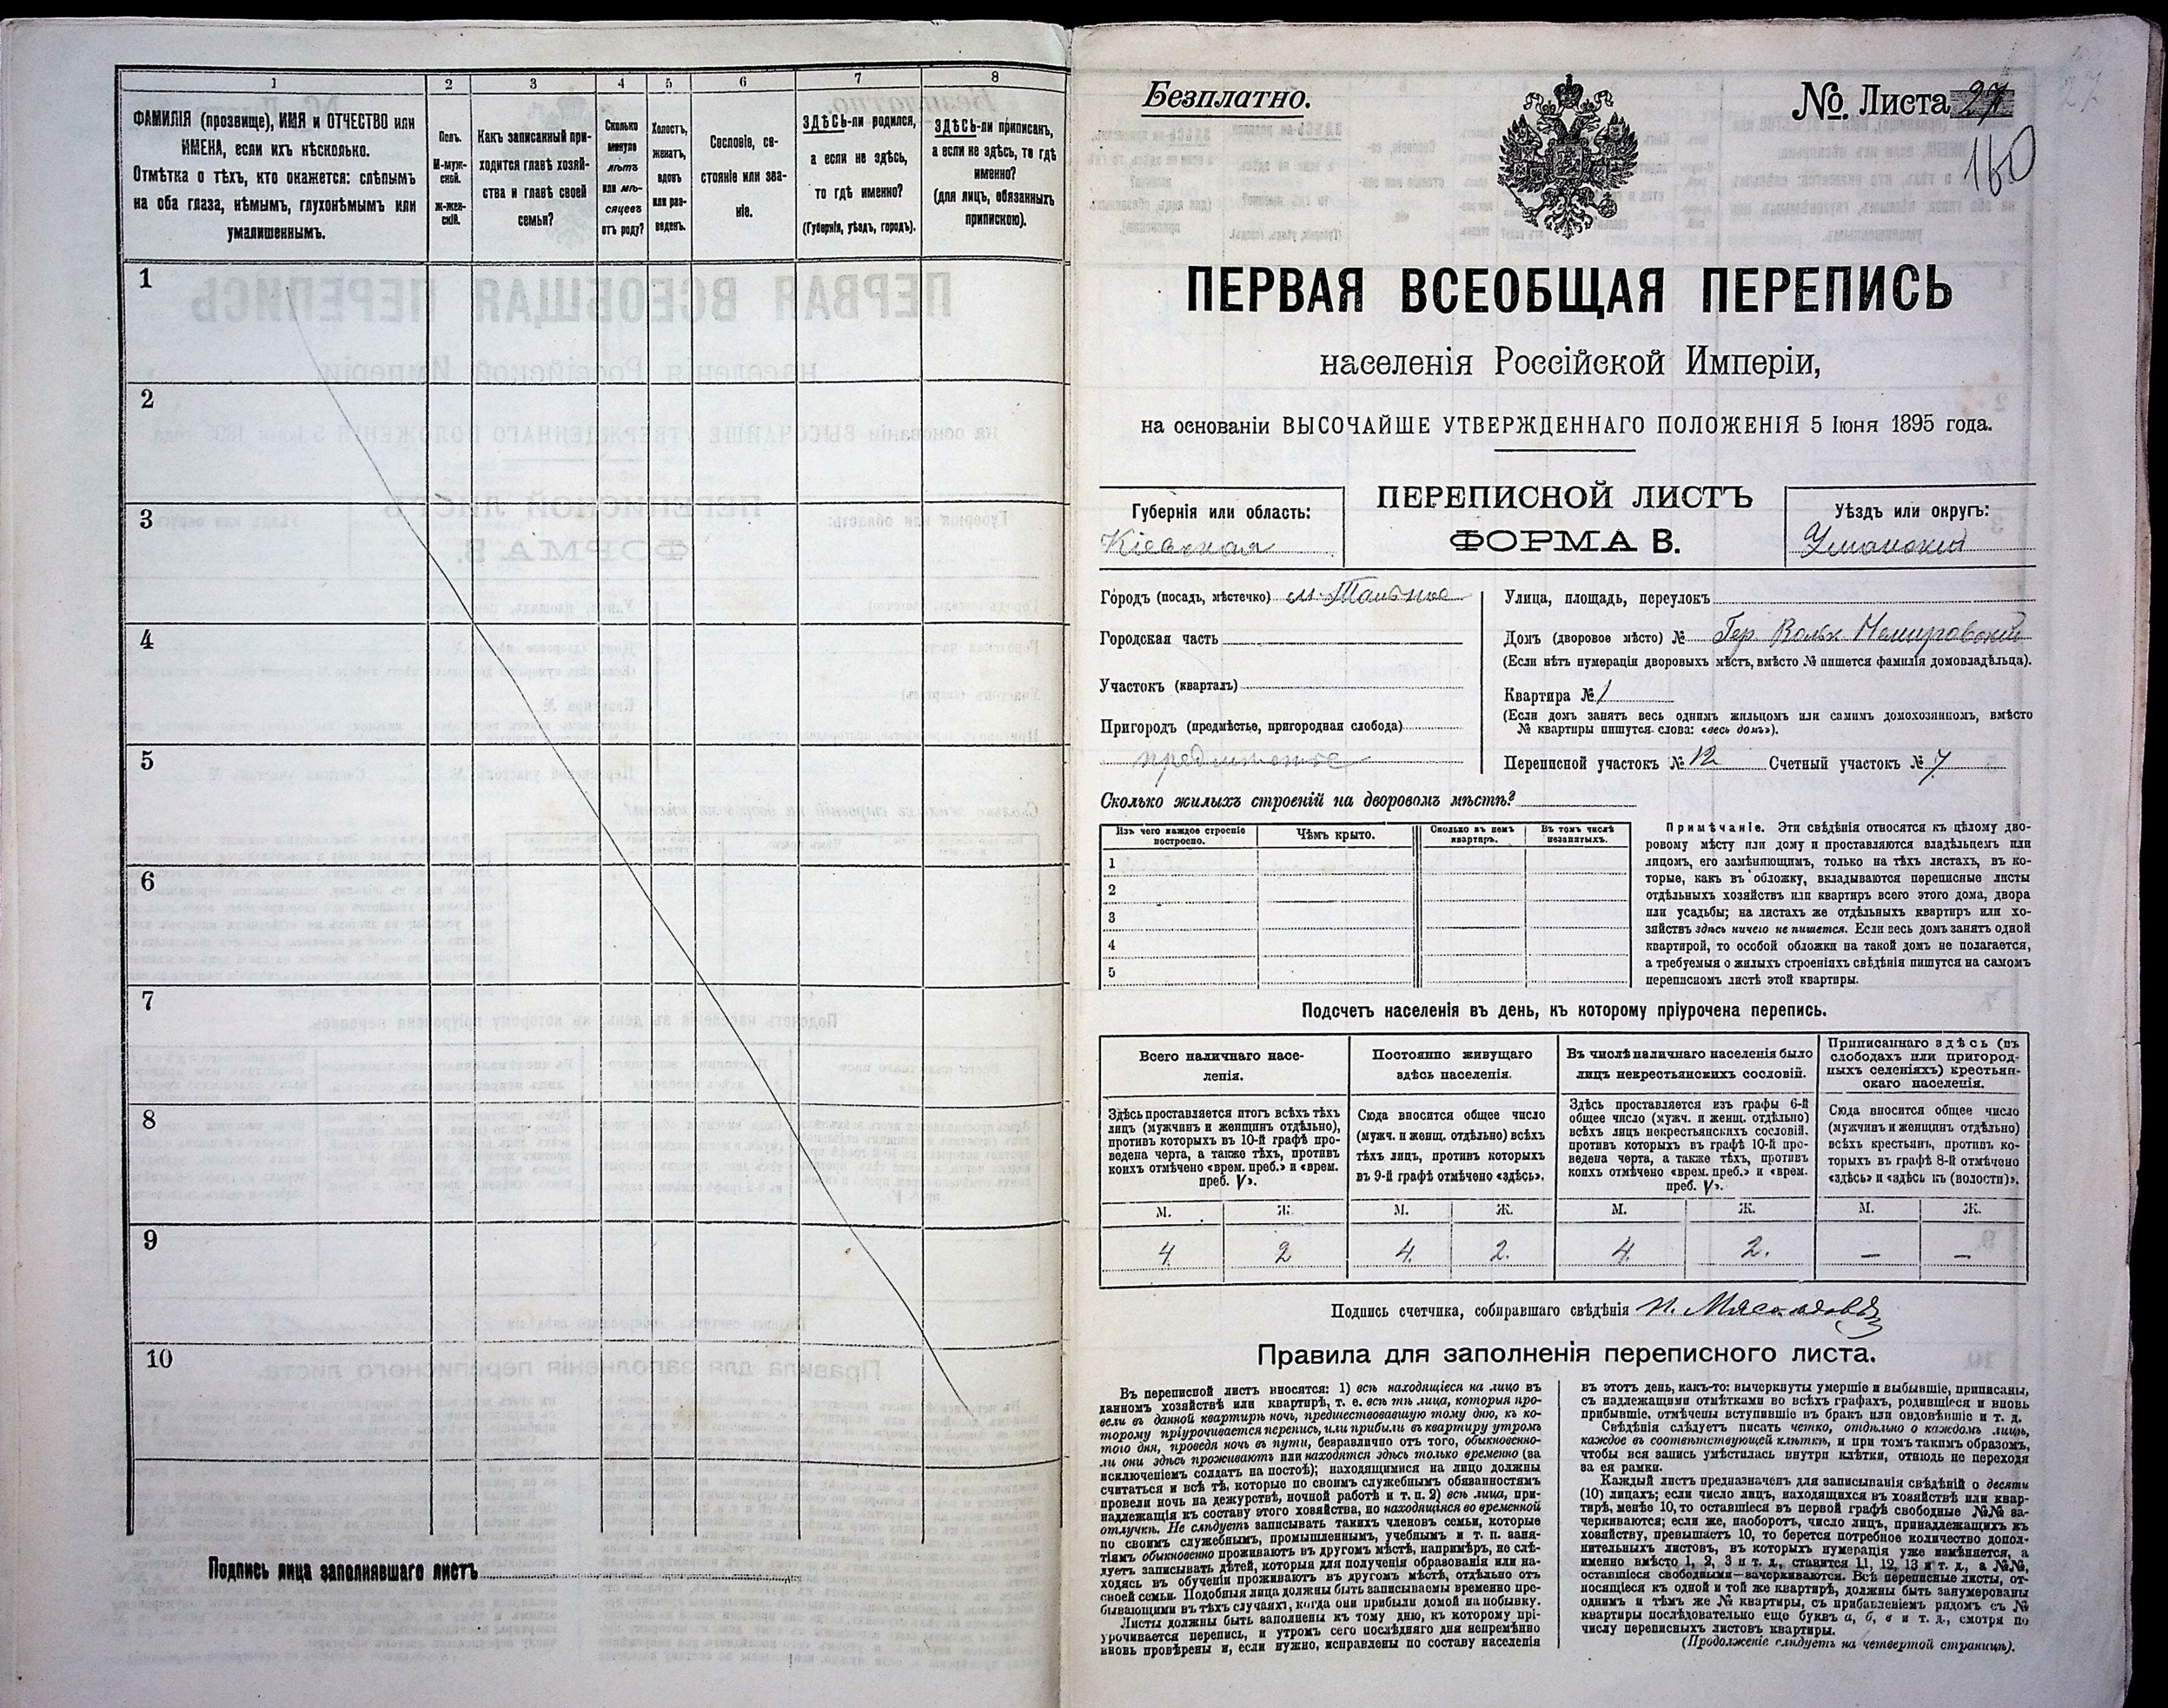 1 2 3 4 5 6 7 8
ФАМИЛІЯ (прозвище), ИМЯ и ОТЧЕСТВО или
ИМЕНА, если ихъ нѣсколько.
Отмѣтка о тѣхъ, кто окажется: слѣпымъ
на оба глаза, нѣмымъ, глухонѣмымъ или
умалишеннымъ.
Полъ.
М-муж-
ской.
Ж-жен-
скій.
Какъ записанный при-
ходится главѣ хозяй-
ства и главѣ своей
семьи?
Сколько
минуло
лѣтъ
или мѣ-
сяцевъ
отъ роду?
Холостъ,
женатъ,
вдовъ
или раз-
веденъ.
Сословіе, со-
стояніе или зва-
ніе.
ЗДѢСЬ-ли родился,
а если не здѣсь,
то гдѣ именно?
(Губернія, уѣздъ, городъ).
ЗДѢСЬ-ли приписанъ,
а если не здѣсь, то гдѣ
именно?
(для лицъ, обязанныхъ
припискою).
1
2
3
4
5
6
7
8
9
10
Подпись лица заполнявшаго листъ
Безплатно.
№. Листа 27
160
ПЕРВАЯ ВСЕОБЩАЯ ПЕРЕПИСЬ
населенія Россійской Имперіи,
на основаніи ВЫСОЧАЙШЕ УТВЕРЖДЕННАГО ПОЛОЖЕНІЯ 5 Іюня 1895 года.
Губернія или область:
Кіевская
ПЕРЕПИСНОЙ ЛИСТЪ
ФОРМА В.
Уѣздъ или округъ:
Уманскій
Городъ (посадъ, мѣстечко) м. Тальное
Городская часть
Участокъ (кварталъ)
Пригородъ (предмѣстье, пригородная слобода)
предмѣстье
Улица, площадь, переулокъ
Домъ (дворовое мѣсто) № Гер. Вольк Немировскій
(Если нѣтъ нумераціи дворовыхъ мѣстъ, вмѣсто № пишется фамилія домовладѣльца).
Квартира № 1
(Если домъ занятъ весь однимъ жильцомъ или самимъ домохозяиномъ, вмѣсто
№ квартиры пишутся слова: «весь домъ»).
Переписной участокъ № 12 Счетный участокъ № 7
Сколько жилыхъ строеній на дворовомъ мѣстѣ?
Изъ чего каждое строеніе
построено.
Чѣмъ крыто.
Сколько въ немъ
квартиръ.
Въ томъ числѣ
незанятыхъ.
1
2
3
4
5
Примѣчаніе. Эти свѣдѣнія относятся къ цѣлому дво-
ровому мѣсту или дому и проставляются владѣльцемъ или
лицомъ, его замѣняющимъ, только на тѣхъ листахъ, въ ко-
торые, какъ въ обложку, вкладываются переписные листы
отдѣльныхъ хозяйствъ или квартиръ всего этого дома, двора
или усадьбы; на листахъ же отдѣльныхъ квартиръ или хо-
зяйствъ здѣсь ничего не пишется. Если весь домъ занятъ одной
квартирой, то особой обложки на такой домъ не полагается,
а требуемыя о жилыхъ строеніяхъ свѣдѣнія пишутся на самомъ
переписномъ листѣ этой квартиры.
Подсчетъ населенія въ день, къ которому пріурочена перепись.
Всего наличнаго насе-
ленія.
Здѣсь проставляется итогъ всѣхъ тѣхъ
лицъ (мужчинъ и женщинъ отдѣльно),
противъ которыхъ въ 10-й графѣ про-
ведена черта, а также тѣхъ, противъ
коихъ отмѣчено «врем. преб.» и «врем.
преб. V».
Постоянно живущаго
здѣсь населенія.
Сюда вносится общее число
(мужч. и женщ. отдѣльно) всѣхъ
тѣхъ лицъ, противъ которыхъ
въ 9-й графѣ отмѣчено «здѣсь».
Въ числѣ наличнаго населенія было
лицъ некрестьянскихъ сословій.
Здѣсь проставляется изъ графы 6-й
общее число (мужч. и женщ. отдѣльно)
всѣхъ лицъ некрестьянскихъ сословій.
противъ которыхъ въ графѣ 10-й про-
ведена черта, а также тѣхъ, противъ
коихъ отмѣчено «врем. преб.» и «врем.
преб. V».
Приписаннаго здѣсь (въ
слободахъ или пригород-
ныхъ селеніяхъ) крестьян-
скаго населенія.
Сюда вносится общее число
(мужчинъ и женщинъ отдѣльно)
всѣхъ крестьянъ, противъ ко-
торыхъ въ графѣ 8-й отмѣчено
«здѣсь» и «здѣсь къ (волости)».
М. Ж. М. Ж. М. Ж. М. Ж.
4. 2 4. 2. 4. 2. — —
Подпись счетчика, собиравшаго свѣдѣнія
Правила для заполненія переписного листа.
Въ переписной листъ вносятся: 1) всѣ находящіеся на лицо въ
данномъ хозяйствѣ или квартирѣ, т. е. всѣ тѣ лица, которыя про-
вели въ данной квартирѣ ночь, предшествовавшую тому дню, къ ко-
торому пріурочивается перепись, или прибыли въ квартиру утромъ
того дня, проведя ночь въ пути, безразлично отъ того, обыкновенно-
ли они здѣсь проживаютъ или находятся здѣсь только временно (за
исключеніемъ солдатъ на постоѣ); находящимися на лицо должны
считаться и всѣ тѣ, которые по своимъ служебнымъ обязанностямъ
провели ночь на дежурствѣ, ночной работѣ и т. п. 2) всѣ лица, при-
надлежащія къ составу этого хозяйства, но находящіяся во временной
отлучкѣ. Не слѣдуетъ записывать такихъ членовъ семьи, которые
по своимъ служебнымъ, промышленнымъ, учебнымъ и т. п. заня-
тіямъ обыкновенно проживаютъ въ другомъ мѣстѣ, напримѣръ, не слѣ-
дуетъ записывать дѣтей, которыя для полученія образованія или на-
ходясь въ обученіи проживаютъ въ другомъ мѣстѣ, отдѣльно отъ
своей семьи. Подобныя лица должны быть записываемы временно пре-
бывающими въ тѣхъ случаяхъ, когда они прибыли домой на побывку.
Листы должны быть заполнены къ тому дню, къ которому прі-
урочивается перепись, и утромъ сего послѣдняго дня непремѣнно
вновь провѣрены и, если нужно, исправлены по составу населенія
въ этотъ день, какъ-то: вычеркнуты умершіе и выбывшіе, приписаны,
съ надлежащими отмѣтками во всѣхъ графахъ, родившіеся и вновь
прибывшіе, отмѣчены вступившіе въ бракъ или овдовѣвшіе и т. д.
Свѣдѣнія слѣдуетъ писать четко, отдѣльно о каждомъ лицѣ,
каждое въ соотвѣтствующей клѣткѣ, и при томъ такимъ образомъ,
чтобы вся запись умѣстилась внутри клѣтки, отнюдь не переходя
за ея рамки.
Каждый листъ предназначенъ для записыванія свѣдѣній о десяти
(10) лицахъ; если число лицъ, находящихся въ хозяйствѣ или квар-
тирѣ, менѣе 10, то оставшіеся въ первой графѣ свободные №№ за-
черкиваются; если же, наоборотъ, число лицъ, принадлежащихъ къ
хозяйству, превышаетъ 10, то берется потребное количество допол-
нительныхъ листовъ, въ которыхъ нумерація уже измѣняется, а
именно вмѣсто 1, 2, 3 и т. д., ставится 11, 12, 13 и т. д., а №№,
оставшіеся свободными—зачеркиваются. Всѣ переписные листы, от-
носящіеся къ одной и той же квартирѣ, должны быть занумерованы
однимъ и тѣмъ же № квартиры, съ прибавленіемъ рядомъ съ №
квартиры послѣдовательно еще буквъ а, б, в и т. д., смотря по
числу переписныхъ листовъ квартиры.
(Продолженіе слѣдуетъ на четвертой страницѣ).